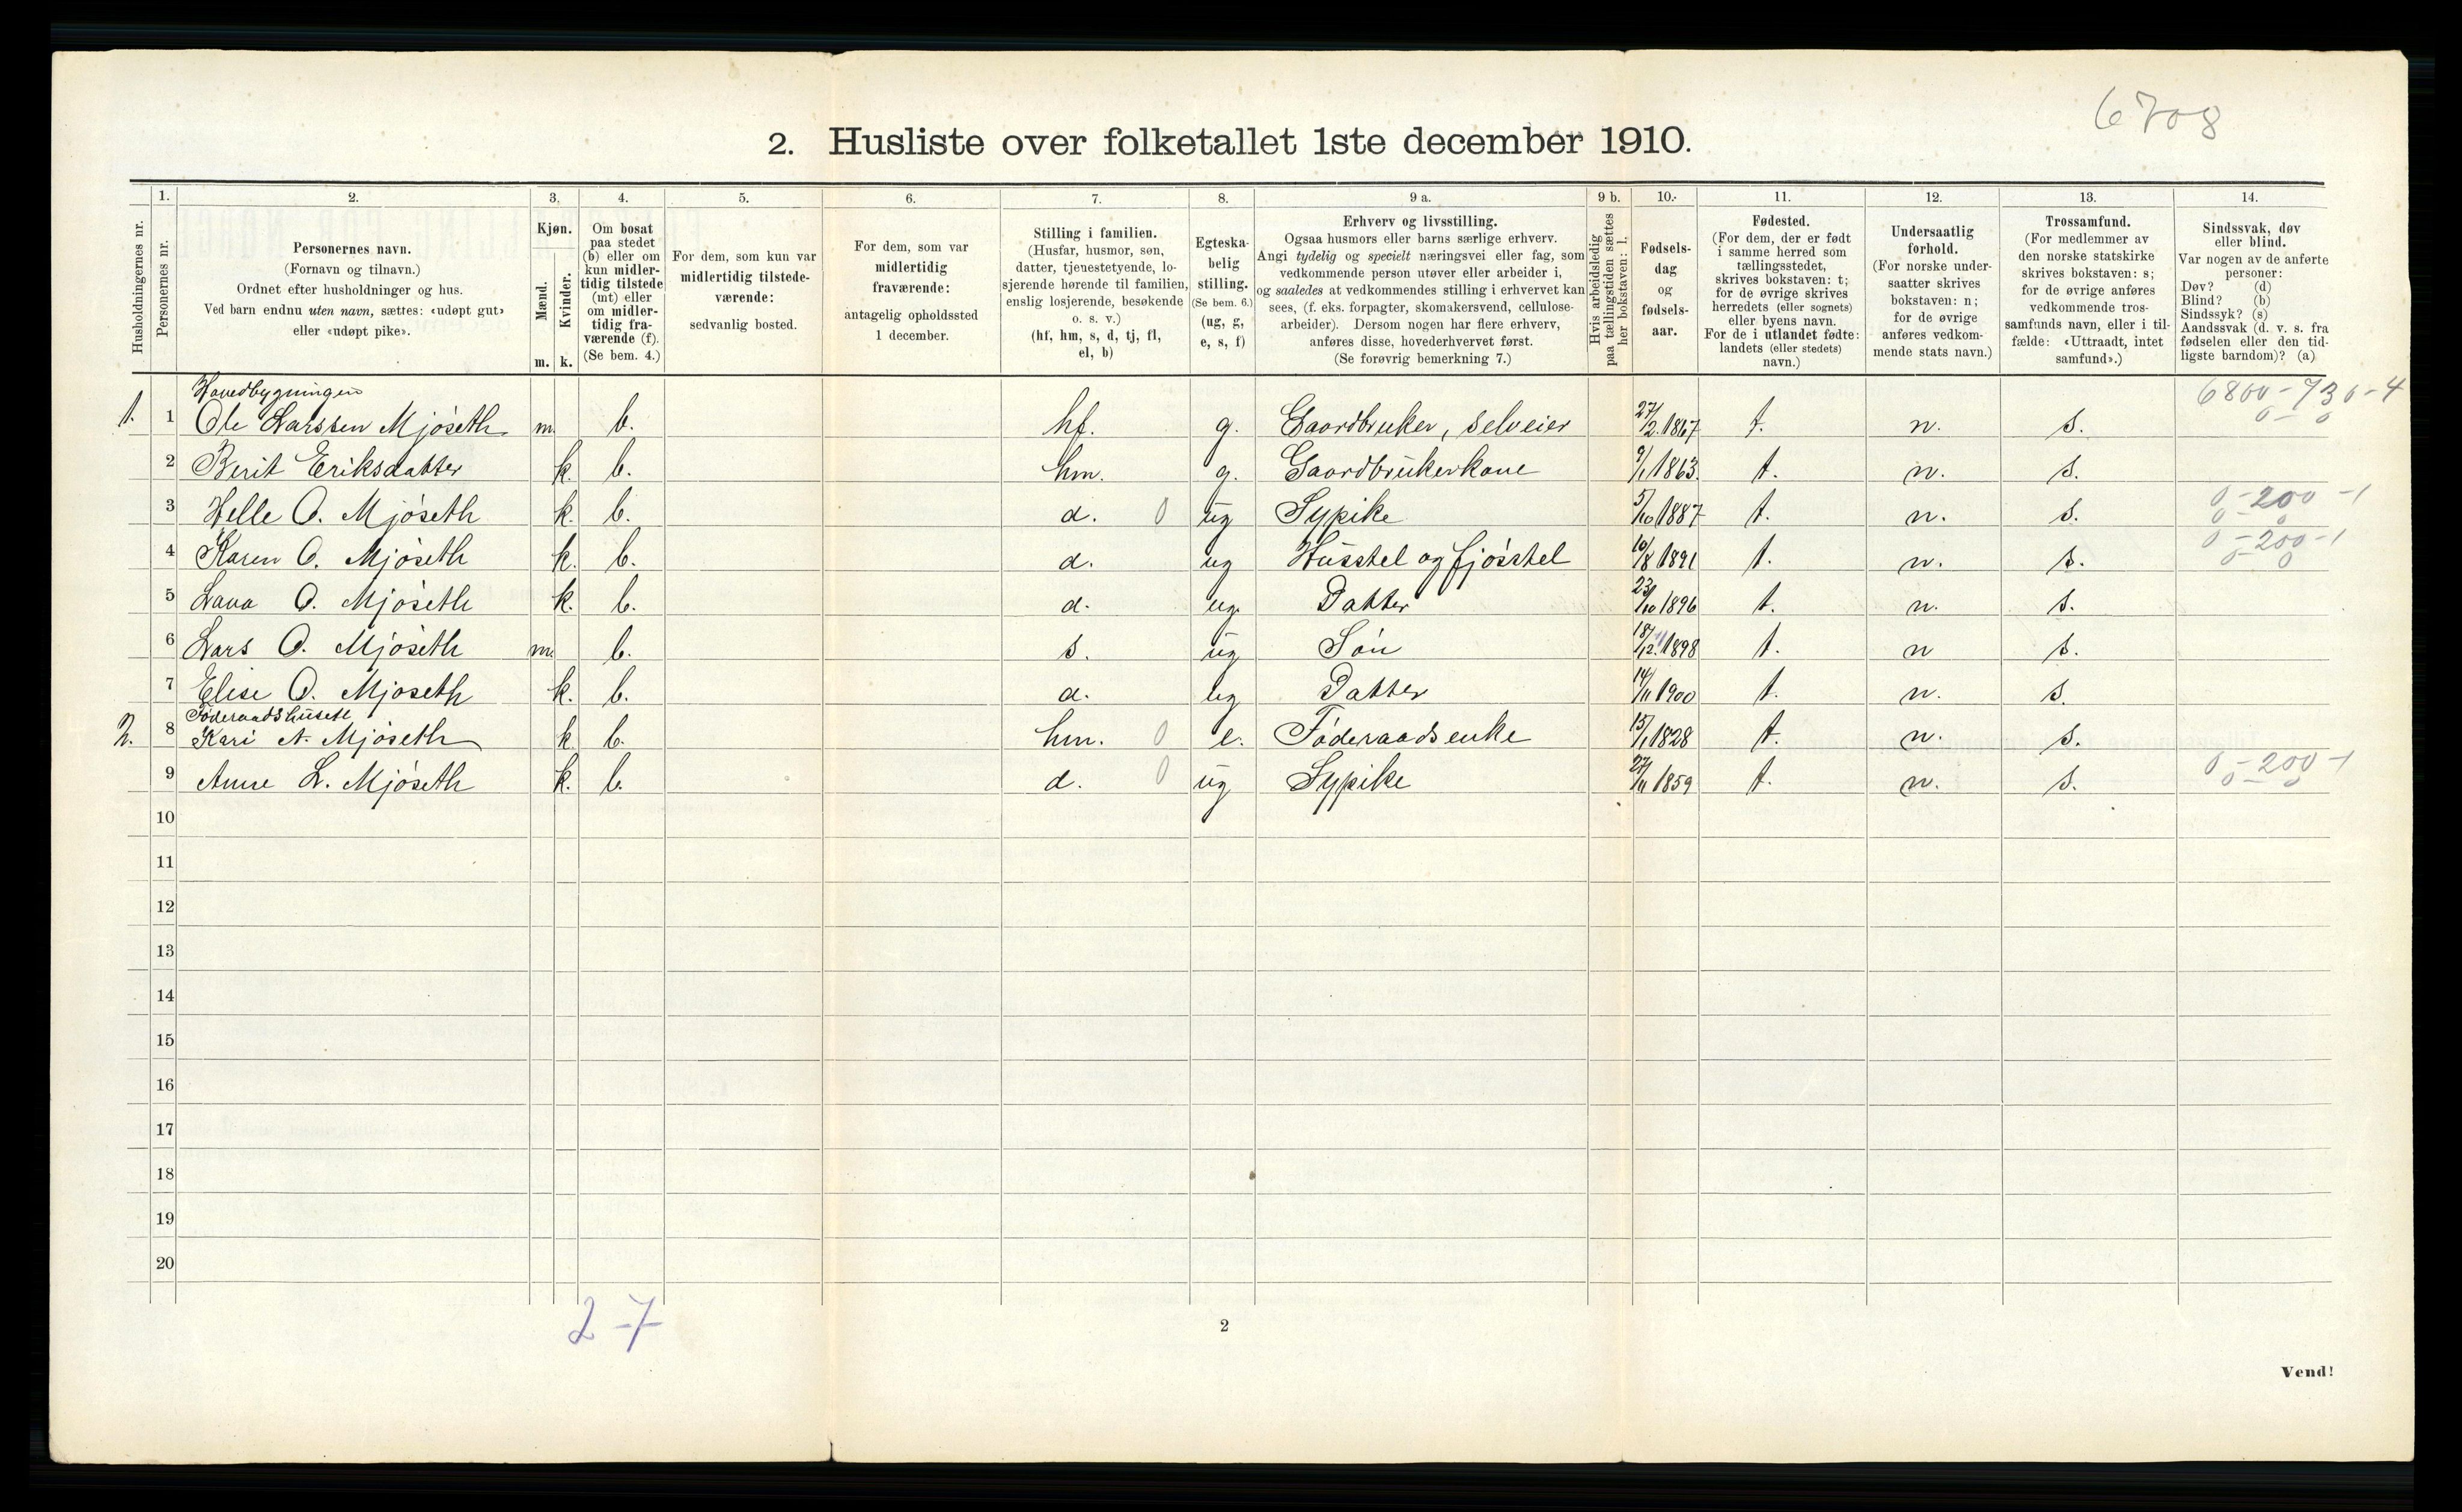 6708
2. Husliste over folketallet 1ste december 1910.
Husholdningernes nr.
1. Personernes nr.
2. Personernes navn.
(Fornavn og tilnavn.)
Ordnet efter husholdninger og hus.
Ved barn endnu uten navn, sættes: «udøpt gut»
eller «udøpt pike».
3. Kjøn.
Mænd. m.
Kvinder. k.
4. Om bosat
paa stedet
(b) eller om
kun midler-
tidig tilstede
(mt) eller
om midler-
tidig fra-
værende (f).
(Se bem. 4.)
5. For dem, som kun var
midlertidig tilstede-
værende:
sedvanlig bosted.
6. For dem, som var
midlertidig
fraværende:
antagelig opholdssted
1 december.
7. Stilling i familien.
(Husfar, husmor, søn,
datter, tjenestetyende, lo-
sjerende hørende til familien,
enslig losjerende, besøkende
o. s. v.)
(hf, hm, s, d, tj, fl,
el, b)
8. Egteska-
belig
stilling.
(Se bem. 6.)
(ug, g,
e, s, f)
9 a. Erhverv og livsstilling.
Ogsaa husmors eller barns særlige erhverv.
Angi tydelig og specielt næringsvei eller fag, som
vedkommende person utøver eller arbeider i,
og saaledes at vedkommendes stilling i erhvervet kan
sees, (f. eks. forpagter, skomakersvend, cellulose-
arbeider). Dersom nogen har flere erhverv,
anføres disse, hovederhvervet først.
(Se forøvrig bemerkning 7.)
9 b. Hvis arbeidsledig
paa tællingstiden sættes
her bokstaven: l.
10. Fødsels-
dag
og
fødsels-
aar.
11. Fødested.
(For dem, der er født
i samme herred som
tællingsstedet,
skrives bokstaven: t;
for de øvrige skrives
herredets (eller sognets)
eller byens navn.
For de i utlandet fødte:
landets (eller stedets)
navn.)
12. Undersaatlig
forhold.
(For norske under-
saatter skrives
bokstaven: n;
for de øvrige
anføres vedkom-
mende stats navn.)
13. Trossamfund.
(For medlemmer av
den norske statskirke
skrives bokstaven: s;
for de øvrige anføres
vedkommende tros-
samfunds navn, eller i til-
fælde: «Uttraadt, intet
samfund».)
14. Sindssvak, døv
eller blind.
Var nogen av de anførte
personer:
Døv? (d)
Blind? (b)
Sindssyk? (s)
Aandssvak (d. v. s. fra
fødselen eller den tid-
ligste barndom)? (a)
Hovedbygningen 6800-730-4
1. 1 Ole Larssen Mjöseth m. b. hf. g. Gaardbruker, selveier 27/2.1867 t. n. s. 0-0
2 Berit Eriksdatter k. b. hm. g. Gaardbrukerkone 9/1 1863. t. n. s.
3 Helle O. Mjöseth k. b. d. 0 ug Sypike 5/10 1887 t. n. s. 0-200-1
0-0
4 Karen O. Mjöseth k. b. d. ug Husstel og fjösstel 10/8 1891 t. n. s. 0-200-1
0-0
5 Lava O. Mjöseth k. b. d. ug. Datter 23/10 1896 t. n. s.
6 Lars O. Mjöseth m. b. s. ug Sön 18/12 1898 t. n s.
7 Elise O. Mjöseth k. b. d. ug Datter 14/11 1900 t. n. s.
Föderaadshuset
2. 8 Kari A. Mjöseth k. b. hm. 0 e. Föderaadsenke 15/1 1828 t. n. s.
9 Anne L. Mjöseth k. b. d. 0 ug Sypike 27/11 1859 t. n. s. 0-200-1
0-0
10
11
12
13
14
15
16
17
18
19
20
2-7
2
Vend!